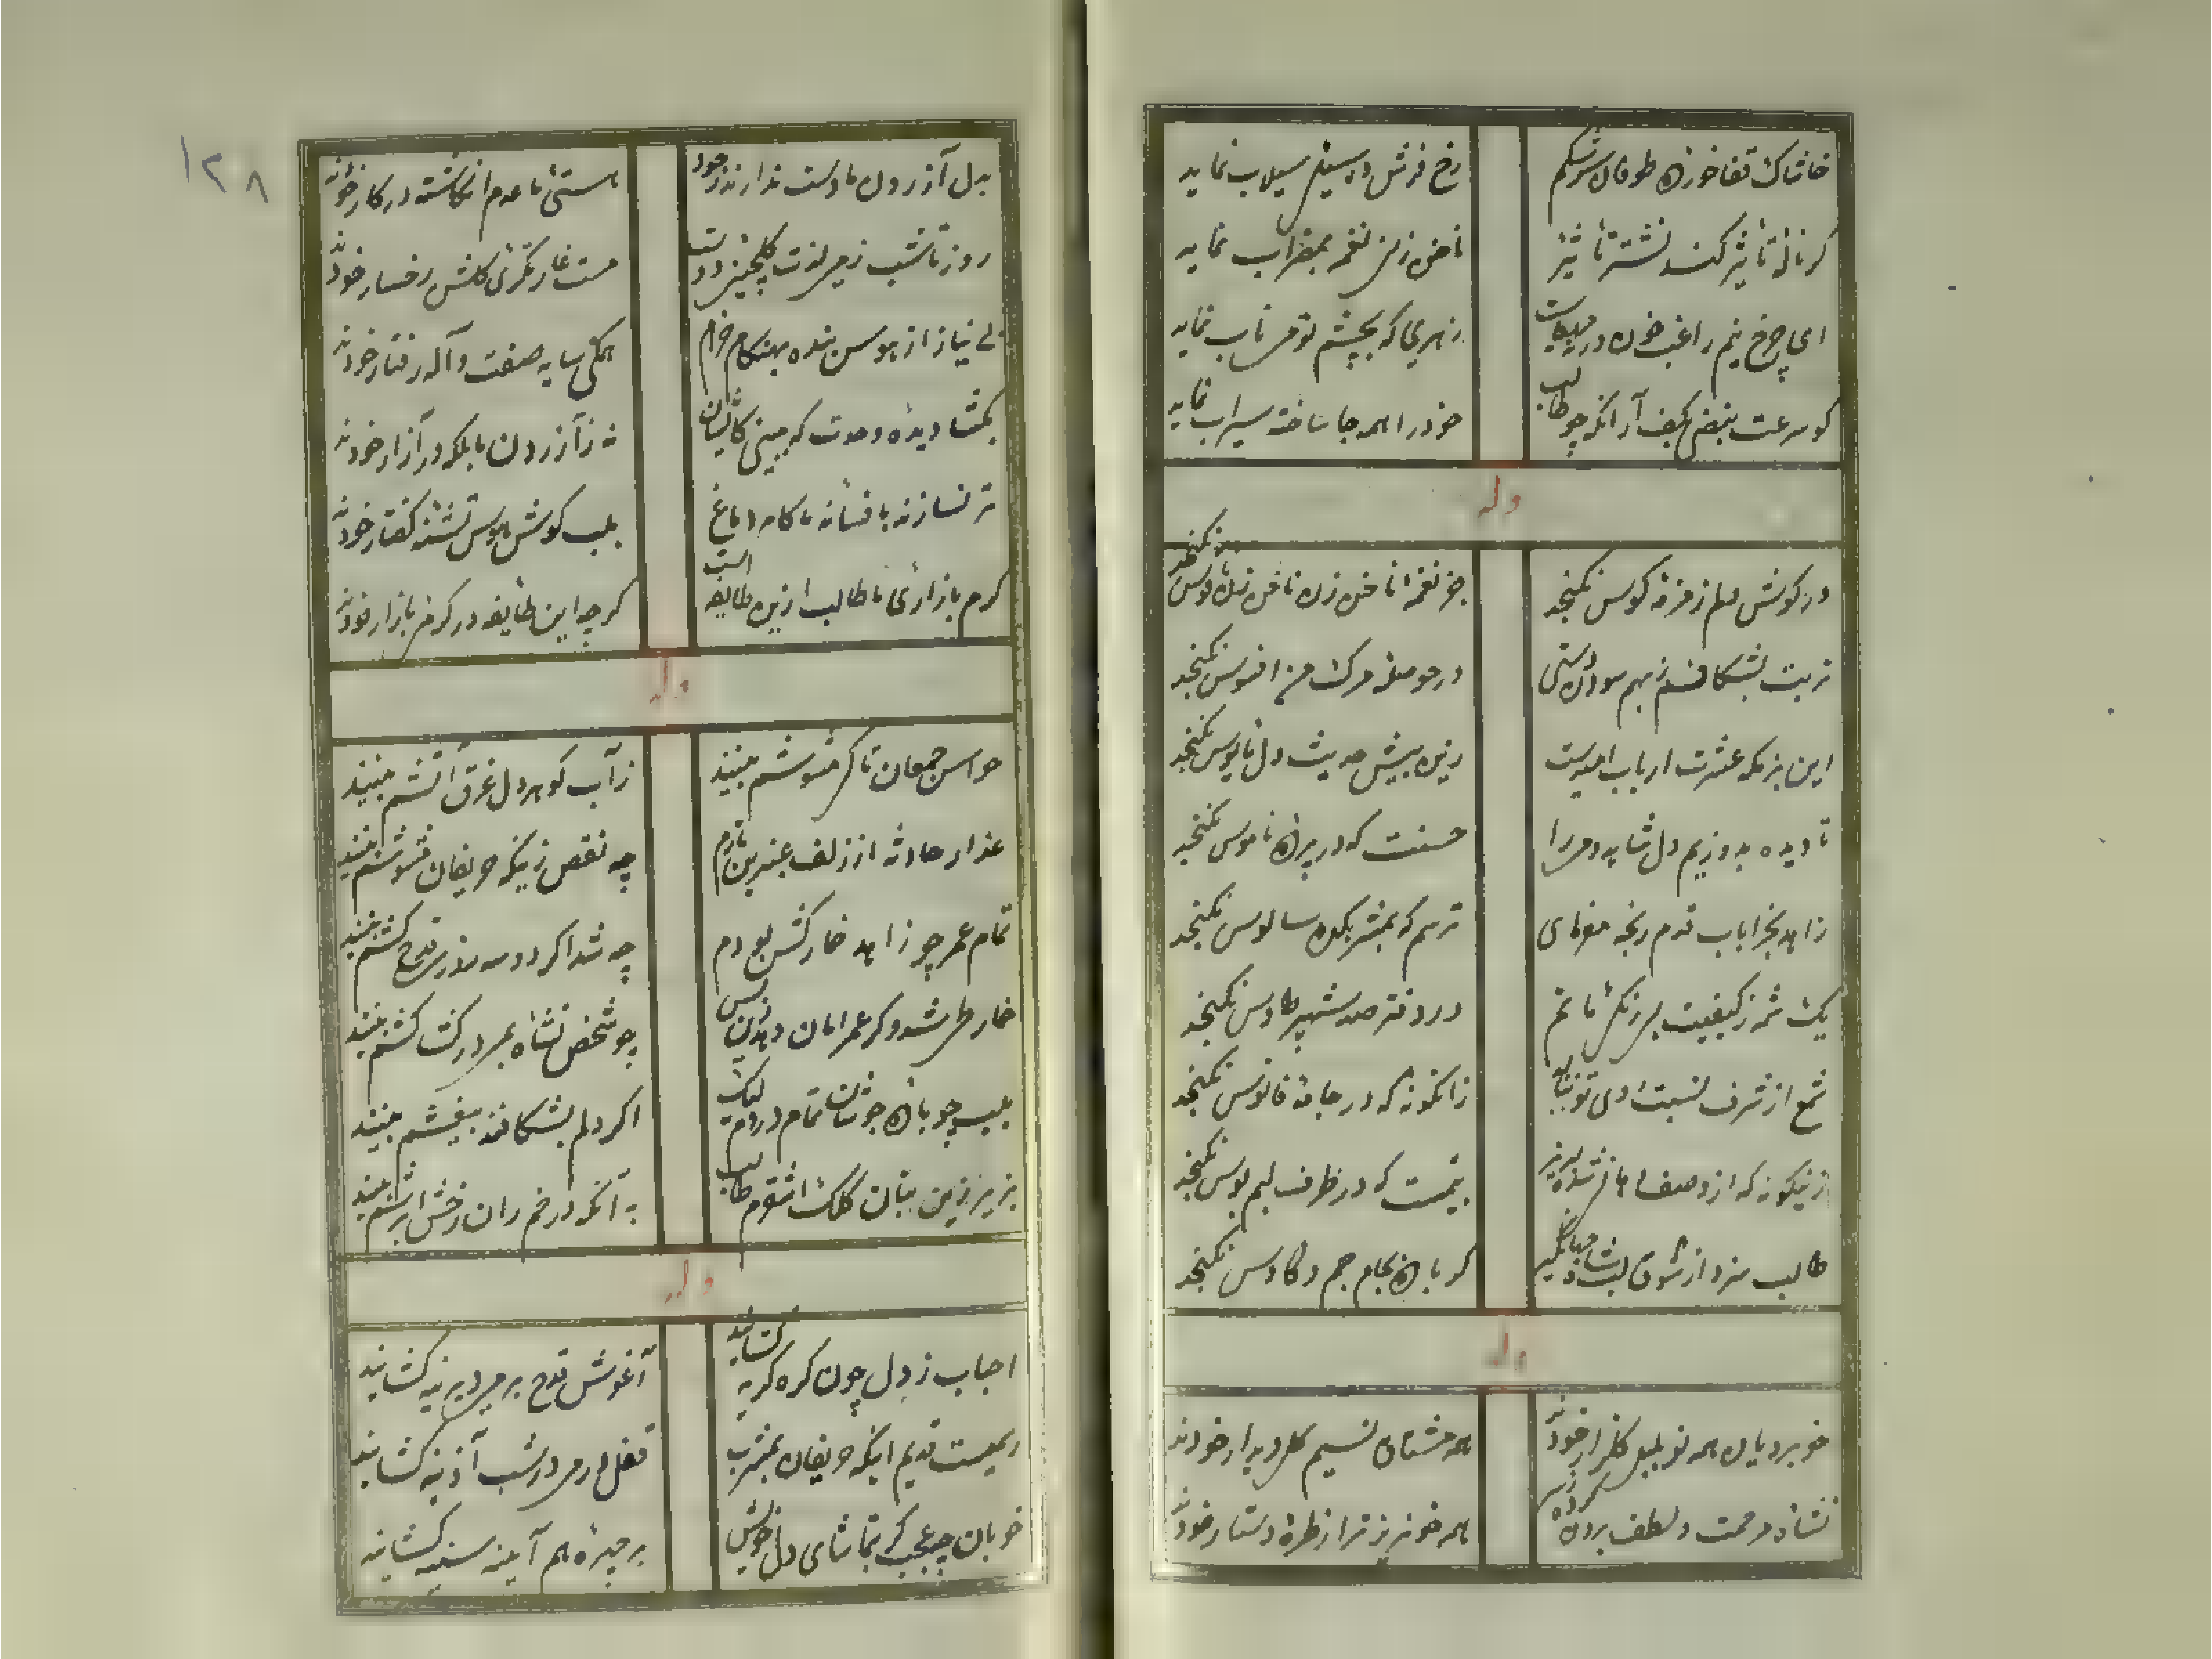 خاشاک قفا خورده طوفان سرشکم
رخ فرش ره سیلی سیلاب نماید
گر ناله تأثیر کند نشتر تأثیر
ناخن زنی نغمه بمضراب نماید
ای چرخ نیم راغب خون در
زهری که بچشم تو می ناب نماید
کو سرعت نبضی بکف آر آنکه چو طالب
خود را همه جا ساخته سیراب نماید
وله
در گوش دلم زمزمه کوس نکنجد
جز نغمه ناخن زن ناخن زن
تربت بشکافند ز بهم سودن دستی
در حوصله مرک من افسوس نکنجد
این بزمکه عشرت ارباب امیدست
زین بیش حدیث دل مایوس نکنجد
تا دیده بدوزیم دل شاید و می را
حسنت که در پرده ناموس نکنجد
زاهد بخرابات قدم رنجه مفرمای
ترسم که بمیکده سالوس نکنجد
یک شمه ز کیفیت بی رنکی ما نم
در دفتر صد شهپر طاوس نکنجد
شمع از شرف نسبت روی تو
زانگونه که در جامه فانوس نکنجد
زینگونه که از وصف لبالب شده لبریز
بیمست که در ظرف لبم بوس نکنجد
طالب سزد از شوق لب شاه جهانگیر
گر باده بجام جم و کاوس نکنجد
وله
خوبرویان همه نو بلبل گلزار خودند
همه مشتاق نسیم گل دیدار خودند
نشاه مرحمت و لطف برون کرده ز سر
همه خونریز تر از طره دستار خودند
۱۲۸
بدل آزردن ما دست ندارند ز جود
هستی ما عدم انکاشته در کار خودند
روز تا شب ز می لذت گلچینی دوست
مست غارتگری گلشن رخسار خودند
بی نیاز از هوس بنده بهنکام خرام
همکی سایه صفت واله رفتار خودند
بکشا دیده وحدت که ببینی کایشان
نه ز آزردن ما بلکه در آزار خودند
تر نسازند بافسانه ما کام دماغ
بلب گوش هوس تشنه گفتار خودند
گرم بازاری ما طالب ازین طایفه است
گرچه این طایفه در گرمی بازار خودند
وله
حواس جمعان تا کی مشوشم بینند
ز آب گوهر دل غرق آتشم بینند
عذار حادثه از زلف عنبرین دارم
چه نقص زینکه حریفان مشوشم بینند
تمام عمر چو زاهد خمارکش بودم
چه شد اگر دو سه روزی قدح کشم بینند
خمار طی شد و گر عمر امان دهد زین پس
چو شخص نشاه بمی در کشاکشم بینند
بلب چو باده جوشان تمام دردم لیک
اگر دلم بشکافند بیغشم بینند
بزیر زین بنان کلک اشقرم طالب
به آنکه در خم ران رخش ابرشم بینند
وله
احباب ز دل چون گره گریه گشایند
آغوش قدح بر می دیرینه گشایند
رسمیست قدیم اینکه حریفان بمشرب
قفل در می در شب آدینه گشایند
خوبان چه عجب گر بتماشای دل خویش
بر چهره هم آینه سینه گشایند